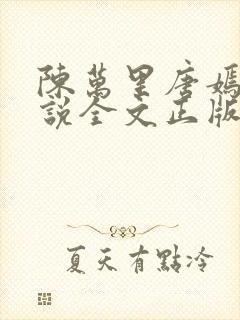 陳萬里唐嫣
說全文正版
夏天有點冷